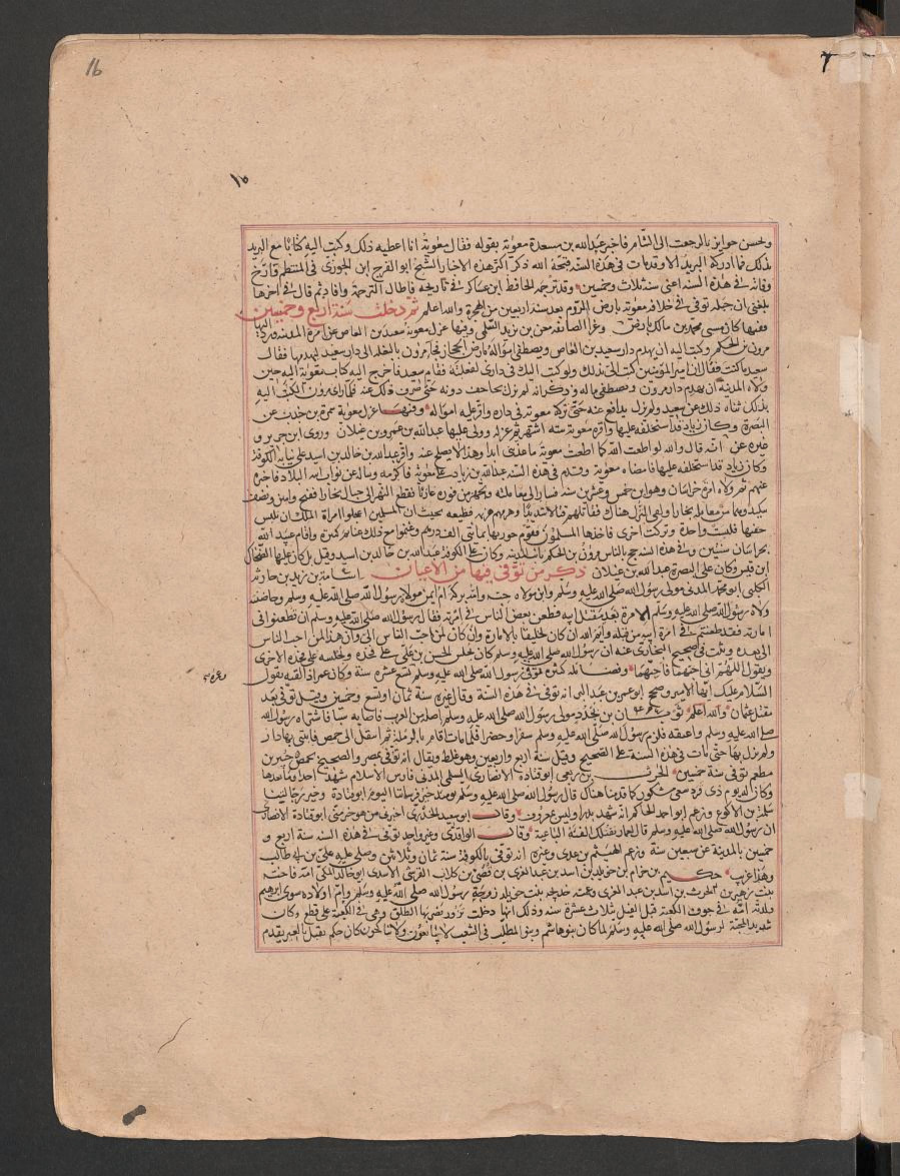 16
١٦
وحسن جوايز بالرجعت الى الشام فاخبر عبدالله بن مسعدة معوية بقوله فقال معوية انا اعطيه ذلك وكتب اليه كتابا مع البريد
بذلك فما ادركه البريد الا وقد مات في هذه السنة رحمة الله ذكر اكثر هذه الاخبار الشيخ ابو الفرج ابن الجوزى في المنتظم وارخ
وفاته في هذه السنة اعنى سنة ثلاث وخمسين وقد ترجمه الحافظ ابن عساكر في تاريخه فاطال الترجمة وافاد ثم قال في اخرها
بلغنى ان جبلة توفى في خلافة معوية بارض الروم بعد سنة اربعين من الهجرة والله اعلم ثم دخلت سنة اربع وخمسين
ففيها كان مشتى محمد بن مالك بارض وغزا الصائفة معن بن يزيد السلمى وفيها عزل معوية سعيد بن العاص عن امرة المدينة ورد اليها
مرون بن الحكم وكتب اليه ان يهدم دار سعيد بن العاص ويصطفى امواله بارض الحجاز فجا مرون بالفعلة الى دار سعيد ليهدمها فقال
سعيد ما كنت فقال ان امير المؤمنين كتب الى بذلك ولو كتب اليك في دارى لفعلته فقام سعيد فاخرج اليه كتاب معوية اليه حين
ولاه المدينة ان يهدم دار مرون ويصطفى ماله وذكر انه لم يزل يحاجف دونه حتى صرف ذلك عنه فلما راى مرون الكتب اليه
بذلك ثناه ذلك عن سعيد ولم يزل يدافع عنه حتى تركه معوية في داره واقر عليه امواله وفيها عزل معوية سمرة بن جندب عن
البصرة وكان زياد قد استخلفه عليها واقره معوية ستة اشهر ثم عزله وولى عليها عبدالله بن عمرو بن غيلان وروى ابن جرير و
غيره عن انه قال والله لو اطعت الله كما اطعت معوية ما عذبنى ابدا وهذا لا يصح عنه واقر عبدالله بن خالد بن اسيد على نيابة الكوفة
وكان زياد قد استخلفه عليها فامضاه معوية وقدم في هذه السنة عبدالله بن زياد على معوية فاكرمه وساله عن نواب ابيه البلاد فاخبره
عنهم ثم ولاه امرة خراسان وهو ابن خمس وعشرين سنة فسار الى معاملته وتجهز من فوره غازيا فقطع النهر الى جبال بخارا ففتح رامين ونصف
بيكند وهما من معاملة بخارا ولقى الترك هناك فقاتلهم قتالا شديدا وهزمهم هزيمة فظيعة بحيث ان المسلمين اعجلوا امراة الملك ان تلبس
خفيها فلبست واحدة وتركت اخرى فاخذها المسلمون فقوم جوربها بمائتى الف درهم وغنموا مع ذلك غنائم كثيرة واقام عبيد الله
بخراسان سنتين وفي هذه السنة حج بالناس مرون بن الحكم نائب المدينة وكان على الكوفة عبدالله بن خالد بن اسيد وقيل بل كان عليها الضحاك
ابن قيس وكان على البصرة عبدالله بن غيلان ذكر من توفى فيها من الاعيان اسامة بن زيد بن حارثة
الكلبى ابو محمد المدنى مولى رسول الله صلى الله عليه وسلم وابن مولاه وامه بركة ام ايمن مولاة رسول الله صلى الله عليه وسلم وحاضنته
ولاه رسول الله صلى الله عليه وسلم الامرة بعد مقتل ابيه فطعن بعض الناس في امرته فقال رسول الله صلى الله عليه وسلم ان تطعنوا في
امارته فقد طعنتم في امرة ابيه من قبله وايم الله ان كان لخليقا بالامارة وان كان لمن احب الناس الى وان هذا لمن احب الناس
الى بعده وثبت في صحيح البخارى عنه ان رسول الله صلى الله عليه وسلم كان يجلس الحسن بن على على فخذه ويجلسه على فخذه الاخرى
ويقول اللهم انى احبهما فاحبهما وفضائله كثيرة توفى رسول الله صلى الله عليه وسلم تسع عشرة سنة وكان عمر اذا لقيه يقول
السلام عليك ايها الامير وصحح ابو عمر بن عبد البر انه توفى في هذه السنة وقال غيره سنة ثمان او تسع وخمسين وقيل توفى بعد
مقتل عثمان والله اعلم ثوبان بن بجدد مولى رسول الله صلى الله عليه وسلم اصله من العرب فاصابه سبا فاشتراه رسول الله
صلى الله عليه وسلم واعتقه فلزم رسول الله صلى الله عليه وسلم سفرا وحضرا فلما مات اقام بالرملة ثم انتقل الى حمص فابتنى بها دارا
ولم يزل بها حتى مات في هذه السنة على الصحيح وقيل سنة اربع واربعين وهو غلط ويقال انه توفى بمصر والصحيح بحمص جبير بن
مطعم توفى سنة خمسين الحرث بن ربعى ابو قتادة الانصارى السلمى المدنى فارس الاسلام شهد احدا وما بعدها
وكان له يوم ذى قرد سعى مشكور كما قدمنا هناك قال رسول الله صلى الله عليه وسلم يومئذ خير فرساننا اليوم ابو قتادة وخير رجالتنا
سلمة بن الاكوع وزعم ابو احمد الحاكم انه شهد بدرا وليس بمعروف وقال ابو سعيد الخدرى اخبرنى من هو خير منى ابو قتادة الانصارى
ان رسول الله صلى الله عليه وسلم قال لعمار تقتلك الفئة الباغية وقال الواقدى وغير واحد توفى في هذه السنة سنة اربع و
خمسين بالمدينة عن سبعين سنة وزعم الهيثم بن عدى وغيره انه توفى بالكوفة سنة ثمان وثلاثين وصلى عليه على بن ابى طالب
وهذا غريب حكيم بن حزام بن خويلد بن اسد بن عبد العزى بن قصى بن كلاب القرشى الاسدى ابو خالد المكى امه فاختة
بنت زهير بن الحرث بن اسد بن عبد العزى وعمته خديجة بنت خويلد زوجة رسول الله صلى الله عليه وسلم وام اولاده سوى ابرهيم
ولدته امه في جوف الكعبة قبل الفيل بثلاث عشرة سنة وذلك انها دخلت تزور فضربها الطلق وهى في الكعبة على نطع وكان
شديد المحبة لرسول الله صلى الله عليه وسلم لما كان بنو هاشم وبنو المطلب في الشعب لا يبايعون ولا يناكحون كان حكيم يقبل بالعير يقدم